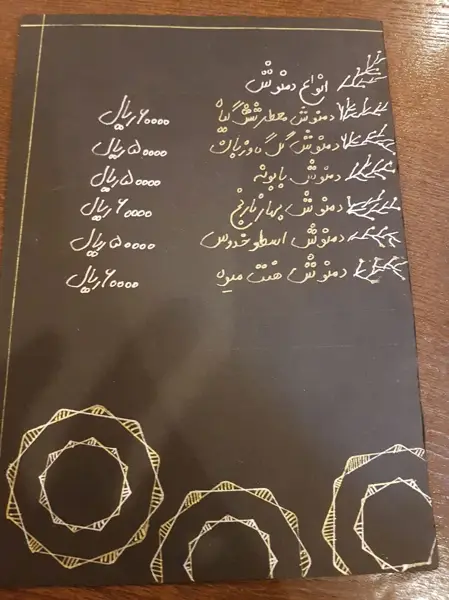 انواع دمنوش
دمنوش معطر شش گیاه ۶۰۰۰۰ ریال
دمنوش گل گاوزبان ۵۰۰۰۰ ریال
دمنوش بابونه ۵۰۰۰۰ ریال
دمنوش بهار نارنج ۶۰۰۰۰ ریال
دمنوش اسطوخدوس ۵۰۰۰۰ ریال
دمنوش هفت میوه ۶۰۰۰۰ ریال